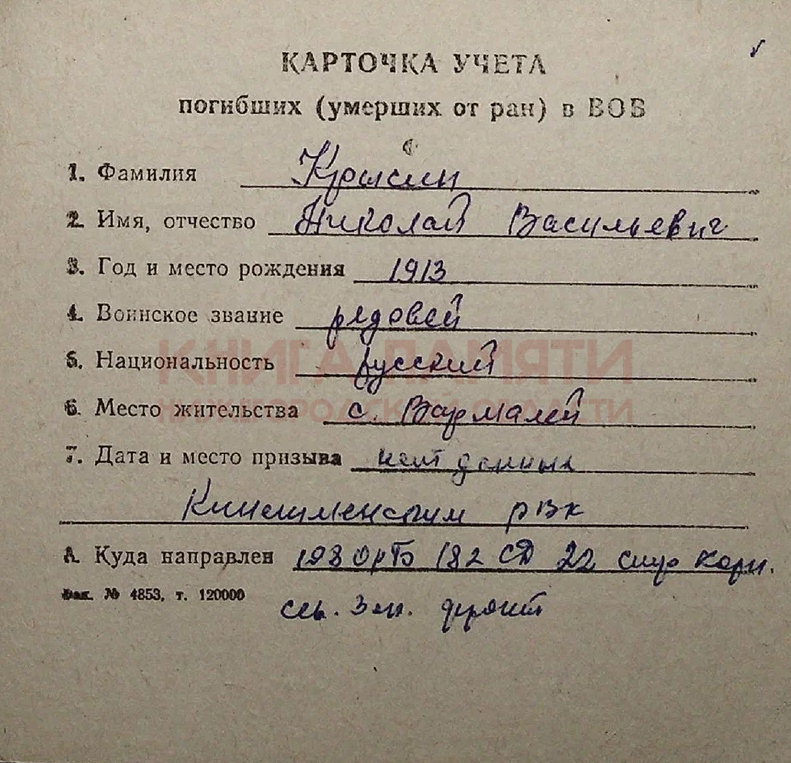 КАРТОЧКА УЧЕТА
погибших (умерших от ран) в ВОВ
1. Фамилия Крысин
2. Имя, отчество Николай Васильевич
3. Год и место рождения 1913
4. Воинское звание рядовой
5. Национальность русский
КНИГА ПАМЯТИ
6. Место жительства с. Вармалей
НИЖЕГОРОДСКОЙ ОБЛАСТИ
7. Дата и место призыва нет данных
Кинешменским рвк
8. Куда направлен 182 СД 22 стр корп.
Зак. № 4853, т. 120000
сев. Зап. фронт